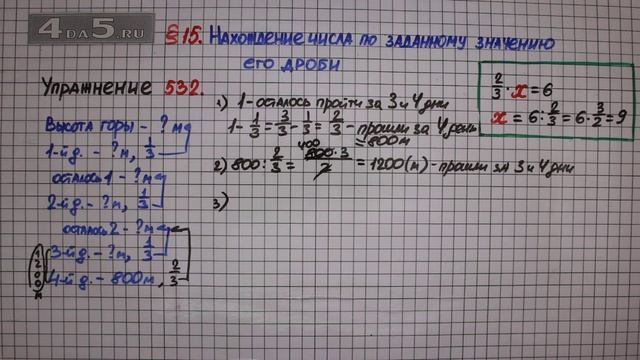 4DA5.RU
§15. Нахождение числа по заданному значению
его дроби
Упражнение 532.
Высота горы - ? м
1-й д. - ? м, 1/3
осталось 1 - ? м
2-й д. - ? м, 1/3
осталось 2 - ? м
3-й д. - ? м, 1/3
4-й д. - 800 м, 2/3
1200 м
1) 1 - осталось пройти за 3 и 4 дни
1 - 1/3 = 3/3 - 1/3 = 2/3 - прошли за 4 день
= 800 м
2) 800 : 2/3 = 800 · 3 / 2 = 1200 (м) - прошли за 3 и 4 дни
400
3)
2/3 · x = 6
x = 6 : 2/3 = 6 · 3/2 = 9